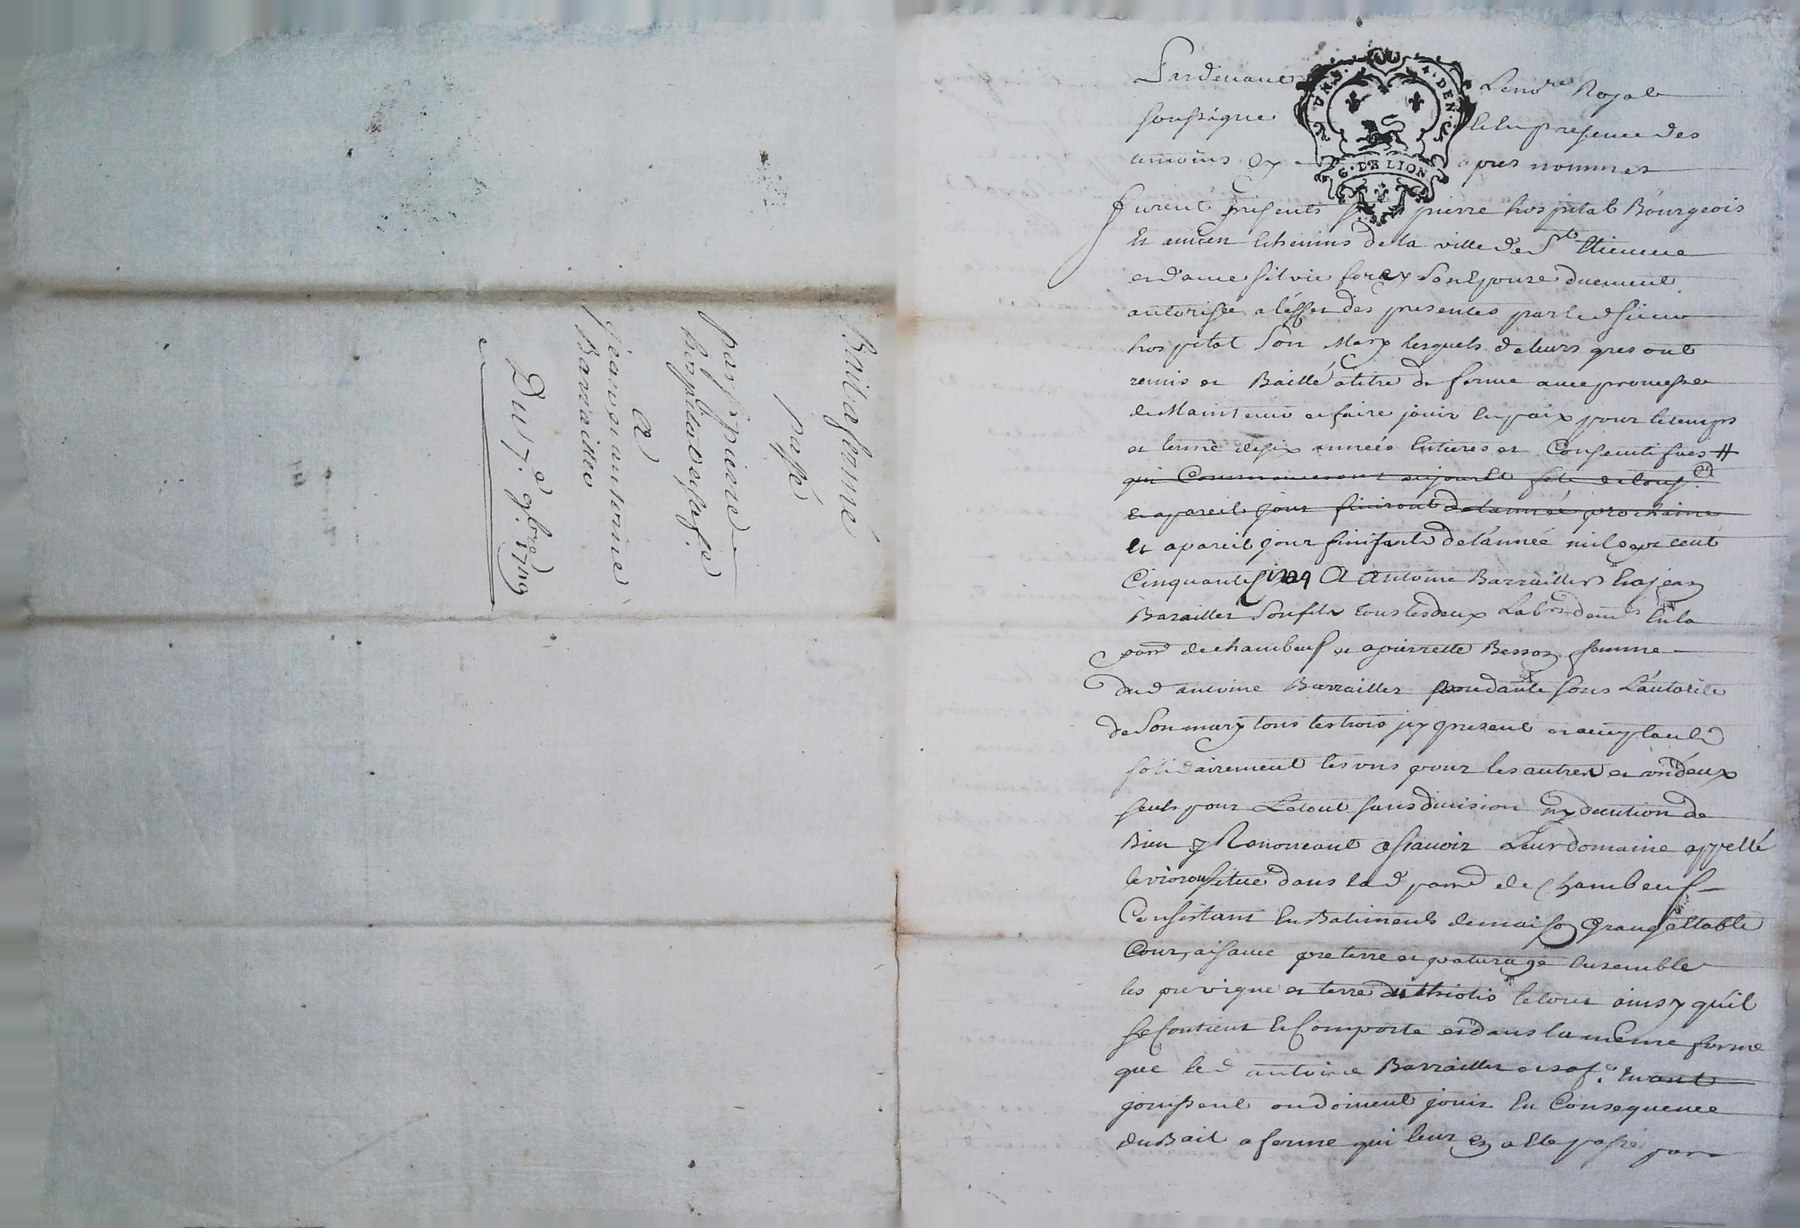 Bail a ferme
passé
par Sr pierre
hospital et sa f.e
A
jean et antoine
Barrailler
Du 7.e 9bre 1749
Pardevant Le no.re Royal
soussigné Et En presence des
temoins apres nommes
furent presents pierre hospital Bourgeois
Et ancien Echevins de la ville de St Etienne
et dame silvie forex son Epouse duement
autorisée a l'effet des presentes par led sieur
hospital son Mary lesquels de leurs gres ont
remis et Baillé a titre de ferme avec promesse
de Maintenir et faire jouir En paix pour le temps
et terme de six années Entieres et Consecutifves #
qui Commenceront au jour et fete de tous.ts
et a pareil jour finiront de l'année prochaine
Et a pareil jour finissants de l'année mil sept cent
Cinquante A Antoine Barrailler Et a jean
Barailler son fils tous les deux Lab.rs dem.ts En la
parr de chambeuf et a pierrette Besson femme
dud antoine Barrailler sous L'autorité
de son mary tous les trois jcy present et acceptants
solidairement les uns pour les autres et un deux
seuls pour Le tout sans division ny de
Bien y Renonceant a scavoir Leur domaine appellé
situé dans lad parr de Chambeuf
Consistant En Batiments de maison Grange Etable
Cour, aisance pre terre et paturage Ensemble
les pre vigne et terre le tout ainsy qu'il
se Contient Et Comporte et dans la même forme
que led antoine Barrailler et sa f.e En ont
jouissent ou doivent jouir En Consequence
du Bail a ferme qui leur En a Ete passé par
G. DE LION